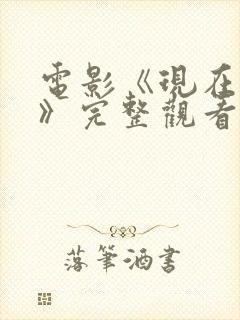 電影《現在
》完整觀看
落筆洒書